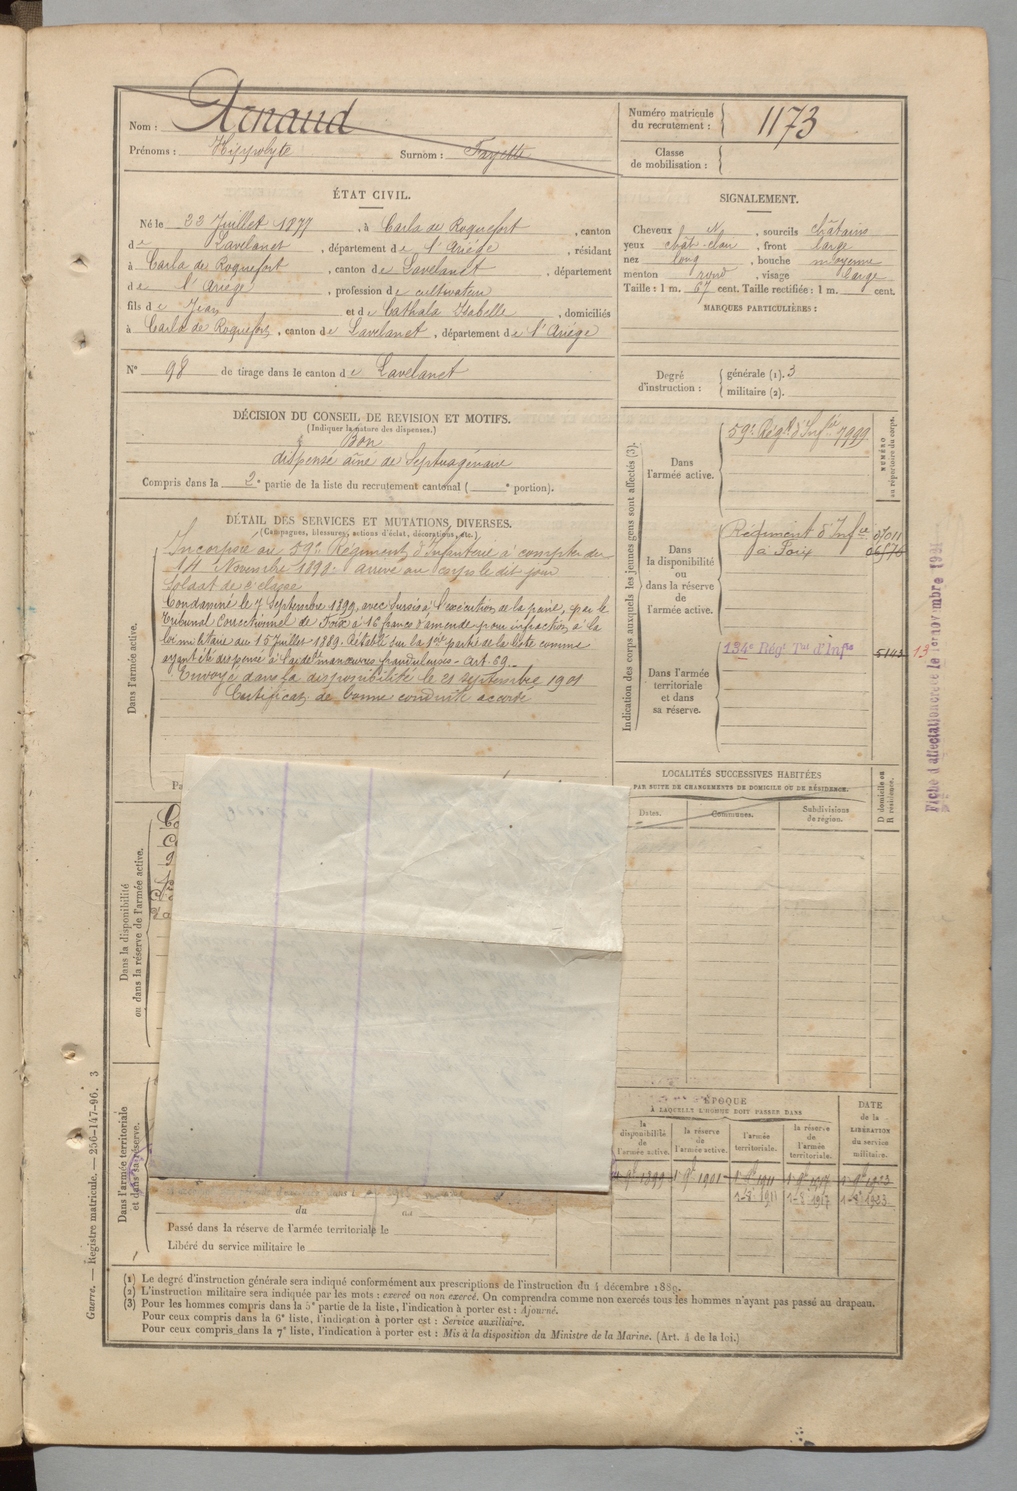 Nom : Arnaud
Prénoms : Hippolyte Surnom : Fayette
Numéro matricule
du recrutement : 1173
Classe
de mobilisation :
ÉTAT CIVIL.
Né le 22 Juillet 1877, à Carla de Roquefort, canton
de Lavelanet, département de l'Ariége, résidant
à Carla de Roquefort, canton de Lavelanet, département
de l'Ariége, profession de cultivateur
fils de Jean et de Cathala Isabelle, domiciliés
à Carla de Roquefort, canton de Lavelanet, département de l'Ariége
N° 98 de tirage dans le canton de Lavelanet
SIGNALEMENT.
Cheveux N^s, sourcils châtains
yeux chât-clair, front large
nez long, bouche moyenne
menton rond, visage large
Taille : 1 m. 67 cent. Taille rectifiée : 1 m. cent.
MARQUES PARTICULIÈRES :
Degré
d'instruction :
générale (1). 3
militaire (2).
DÉCISION DU CONSEIL DE REVISION ET MOTIFS.
(Indiquer la nature des dispenses.)
Bon
dispensé aîné de Septuagénaire
Compris dans la 2e partie de la liste du recrutement cantonal ( e portion).
DÉTAIL DES SERVICES ET MUTATIONS DIVERSES.
(Campagnes, blessures, actions d'éclat, décorations, etc.)
Dans l'armée active.
Incorporé au 59e Régiment d'Infanterie à compter du
14 Novembre 1898. Arrivé au corps le dit jour
Soldat de 2e classe
Condamné le 7 Septembre 1899, avec sursis à l'exécution de la peine, par le
Tribunal Correctionnel de Foix à 16 francs d'amende pour infraction à la
loi militaire du 15 Juillet 1889. Rétabli sur la 1ère partie de la liste comme
ayant été dispensé à l'aide de manœuvres frauduleuses - Art. 69.
Envoyé dans la disponibilité le 21 septembre 1901
Certificat de bonne conduite accordé
Dans la disponibilité
ou dans la réserve de l'armée active.
Dans l'armée territoriale
et dans sa réserve.
Indication des corps auxquels les jeunes gens sont affectés (3).
NUMÉRO
au répertoire du corps.
Dans
l'armée active.
59e Régt d'Infie 7999
Dans
la disponibilité
ou
dans la réserve
de
l'armée active.
Régiment d'Infie
à Foix
Dans l'armée
territoriale
et dans
sa réserve.
134e Régt Tal d'Infie 5143 13
Fiche d'affectation créée le 1er novembre 1921
LOCALITÉS SUCCESSIVES HABITÉES
PAR SUITE DE CHANGEMENTS DE DOMICILE OU DE RÉSIDENCE.
Dates. Communes. Subdivisions
de région.
D domicile ou
R résidence.
ÉPOQUE
À LAQUELLE L'HOMME DOIT PASSER DANS
DATE
de la
LIBÉRATION
du service
militaire.
la
disponibilité
de
l'armée active.
la réserve
de
l'armée active.
l'armée
territoriale.
la réserve
de
l'armée
territoriale.
1 9bre 1899 1 9bre 1901 1 9bre 1911 1 9bre 1917 1 9bre 1923
1-8bre 1911 1-8bre 1917 1-8bre 1923
du
Passé dans la réserve de l'armée territoriale le
Libéré du service militaire le
(1) Le degré d'instruction générale sera indiqué conformément aux prescriptions de l'instruction du 4 décembre 1889.
(2) L'instruction militaire sera indiquée par les mots : exercé ou non exercé. On comprendra comme non exercés tous les hommes n'ayant pas passé au drapeau.
(3) Pour les hommes compris dans la 5e partie de la liste, l'indication à porter est : Ajourné.
Pour ceux compris dans la 6e liste, l'indication à porter est : Service auxiliaire.
Pour ceux compris dans la 7e liste, l'indication à porter est : Mis à la disposition du Ministre de la Marine. (Art. 4 de la loi.)
Guerre. — Registre matricule. — 256-147-96. 3